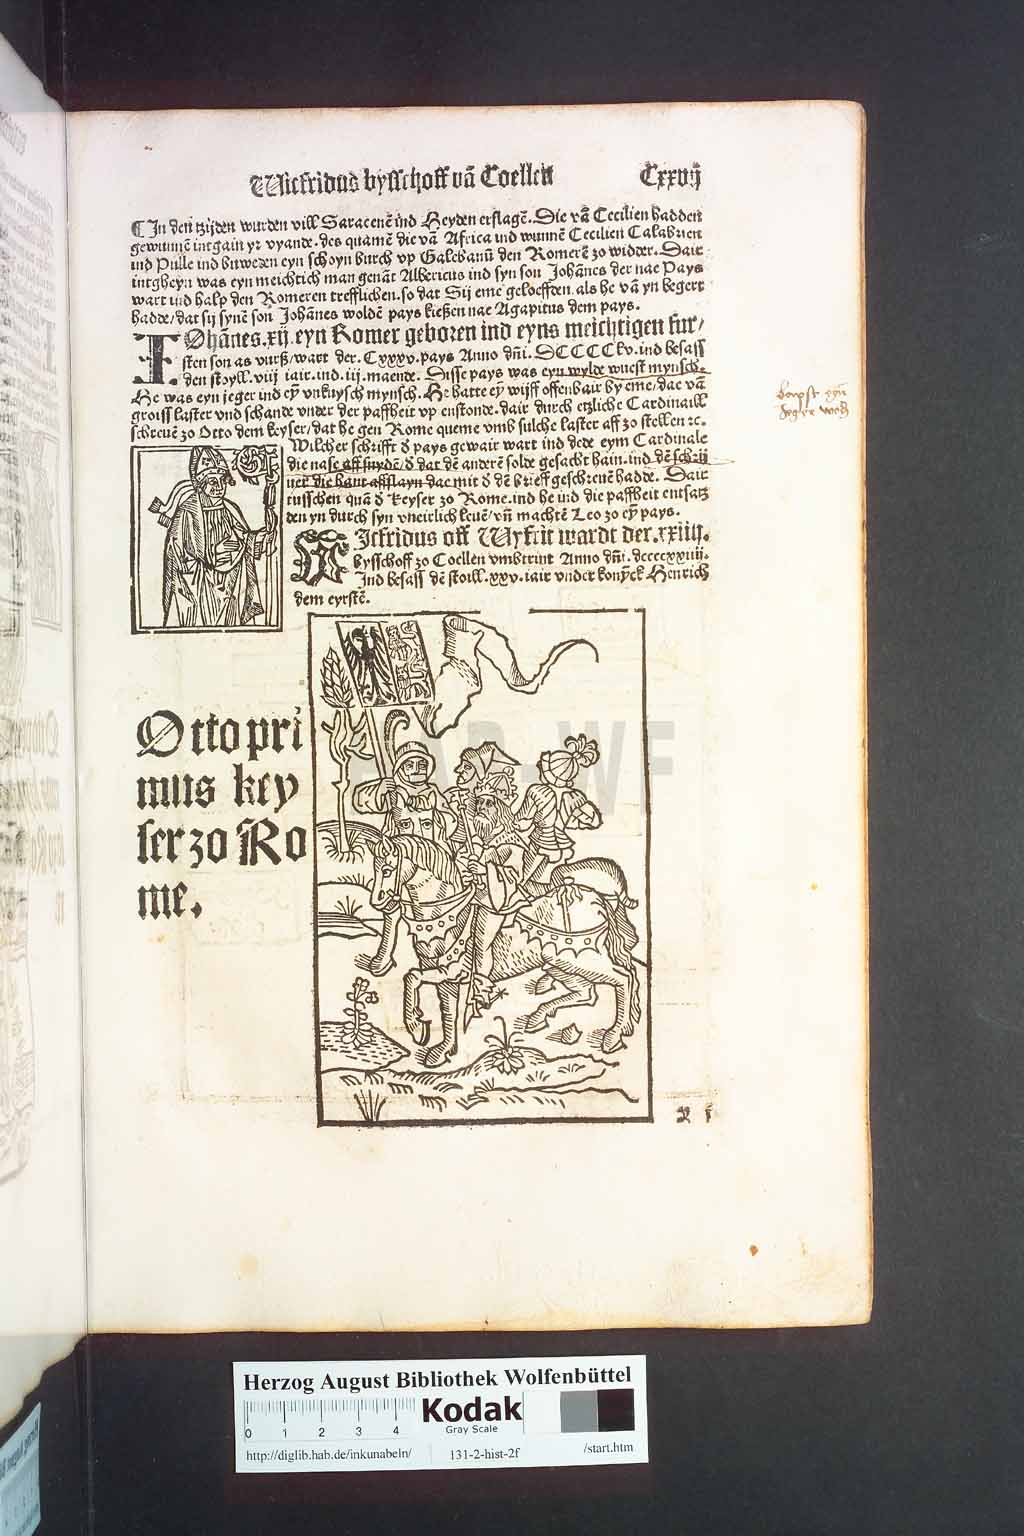 Wicfridus bysschoff vā Coellen CXxvij
¶ In den tzijden wurden vill Saracenē ind Heyden erslagē. Die vā Cecilien hadden
gewunnē intgain yr vyande. des quamē die vā Africa ind wunnē Cecilien Calabrien
ind Pulle ind buweden eyn schoyn burch vp Galebanū den Romerē zo widder. Daie
intgheyn was eyn meichtich man genāt Albericus ind syn son Johānes der nae Pays
wart ind halp den Romeren trefflichen. so dat Sij eme geloefften. als he vā yn begert
hadde/ dat sij synē son Johānes woldē pays kießen nae Agapitus dem pays.
IOhānes. xij. eyn Romer geboren ind eyns meichtigen fur/
sten son as vurß/ wart der. Cxxxv. pays Anno dñi. DCCCClv. ind besaß
den stoyll. viij iair. ind. iij. maende. Disse pays was eyn wylde wuest mynsch.
He was eyn jeger ind eȳ vnkuysch mynsch. He hatte eȳ wijff offenbair by eme/ dae vā
groiss laster vnd schande vnder der paffheit vp enstonde. dair durch etzliche Cardinaill
schreuē zo Otto dem keyser/ dat he gen Rome queme vmb sulche laster aff zo stellen ꝛc.
Wilcher schrifft d̄ pays gewair wart ind dede eym Cardinale
die nase aff snydē/ d̄ dat dē anderē solde gesacht hain. ind dē schrij
uer die hant affslayn dae mit d̄ dē brieff geschreuē hadde. Dair
tusschen quā d̄ keyser zo Rome. ind he ind die paffheit entsatz
den yn durch syn vneirlich leuē/ vñ machtē Leo zo eȳ pays.
WIcfridus off Wyfrit wardt der. xxiiij.
bysschoff zo Coellen vmbtrint Anno dñi. dccccxxviij.
Ind besass dē stoill. xxv. iair vnder konȳck Henrich
dem eyrstē.
Otto pri
mus key
ser zo Ro
me.
HAB-WF
Herzog August Bibliothek Wolfenbüttel
0 1 2 3 4
Kodak
Gray Scale
http://diglib.hab.de/inkunabeln/ 131-2-hist-2f /start.htm